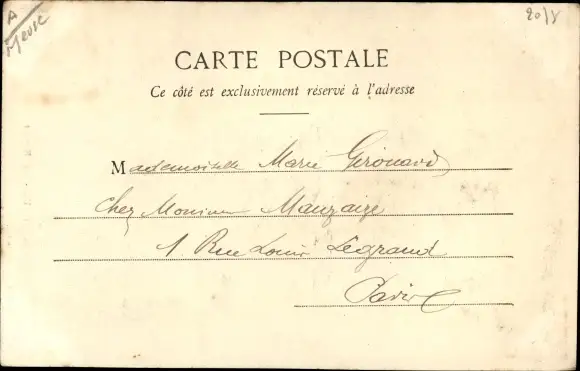 A
Meuse
20/V
CARTE POSTALE
Ce côté est exclusivement réservé à l'adresse
Mademoiselle Marie Girouard
Chez Monsieur Mauzaize
1 Rue Louis Legrand
Paris